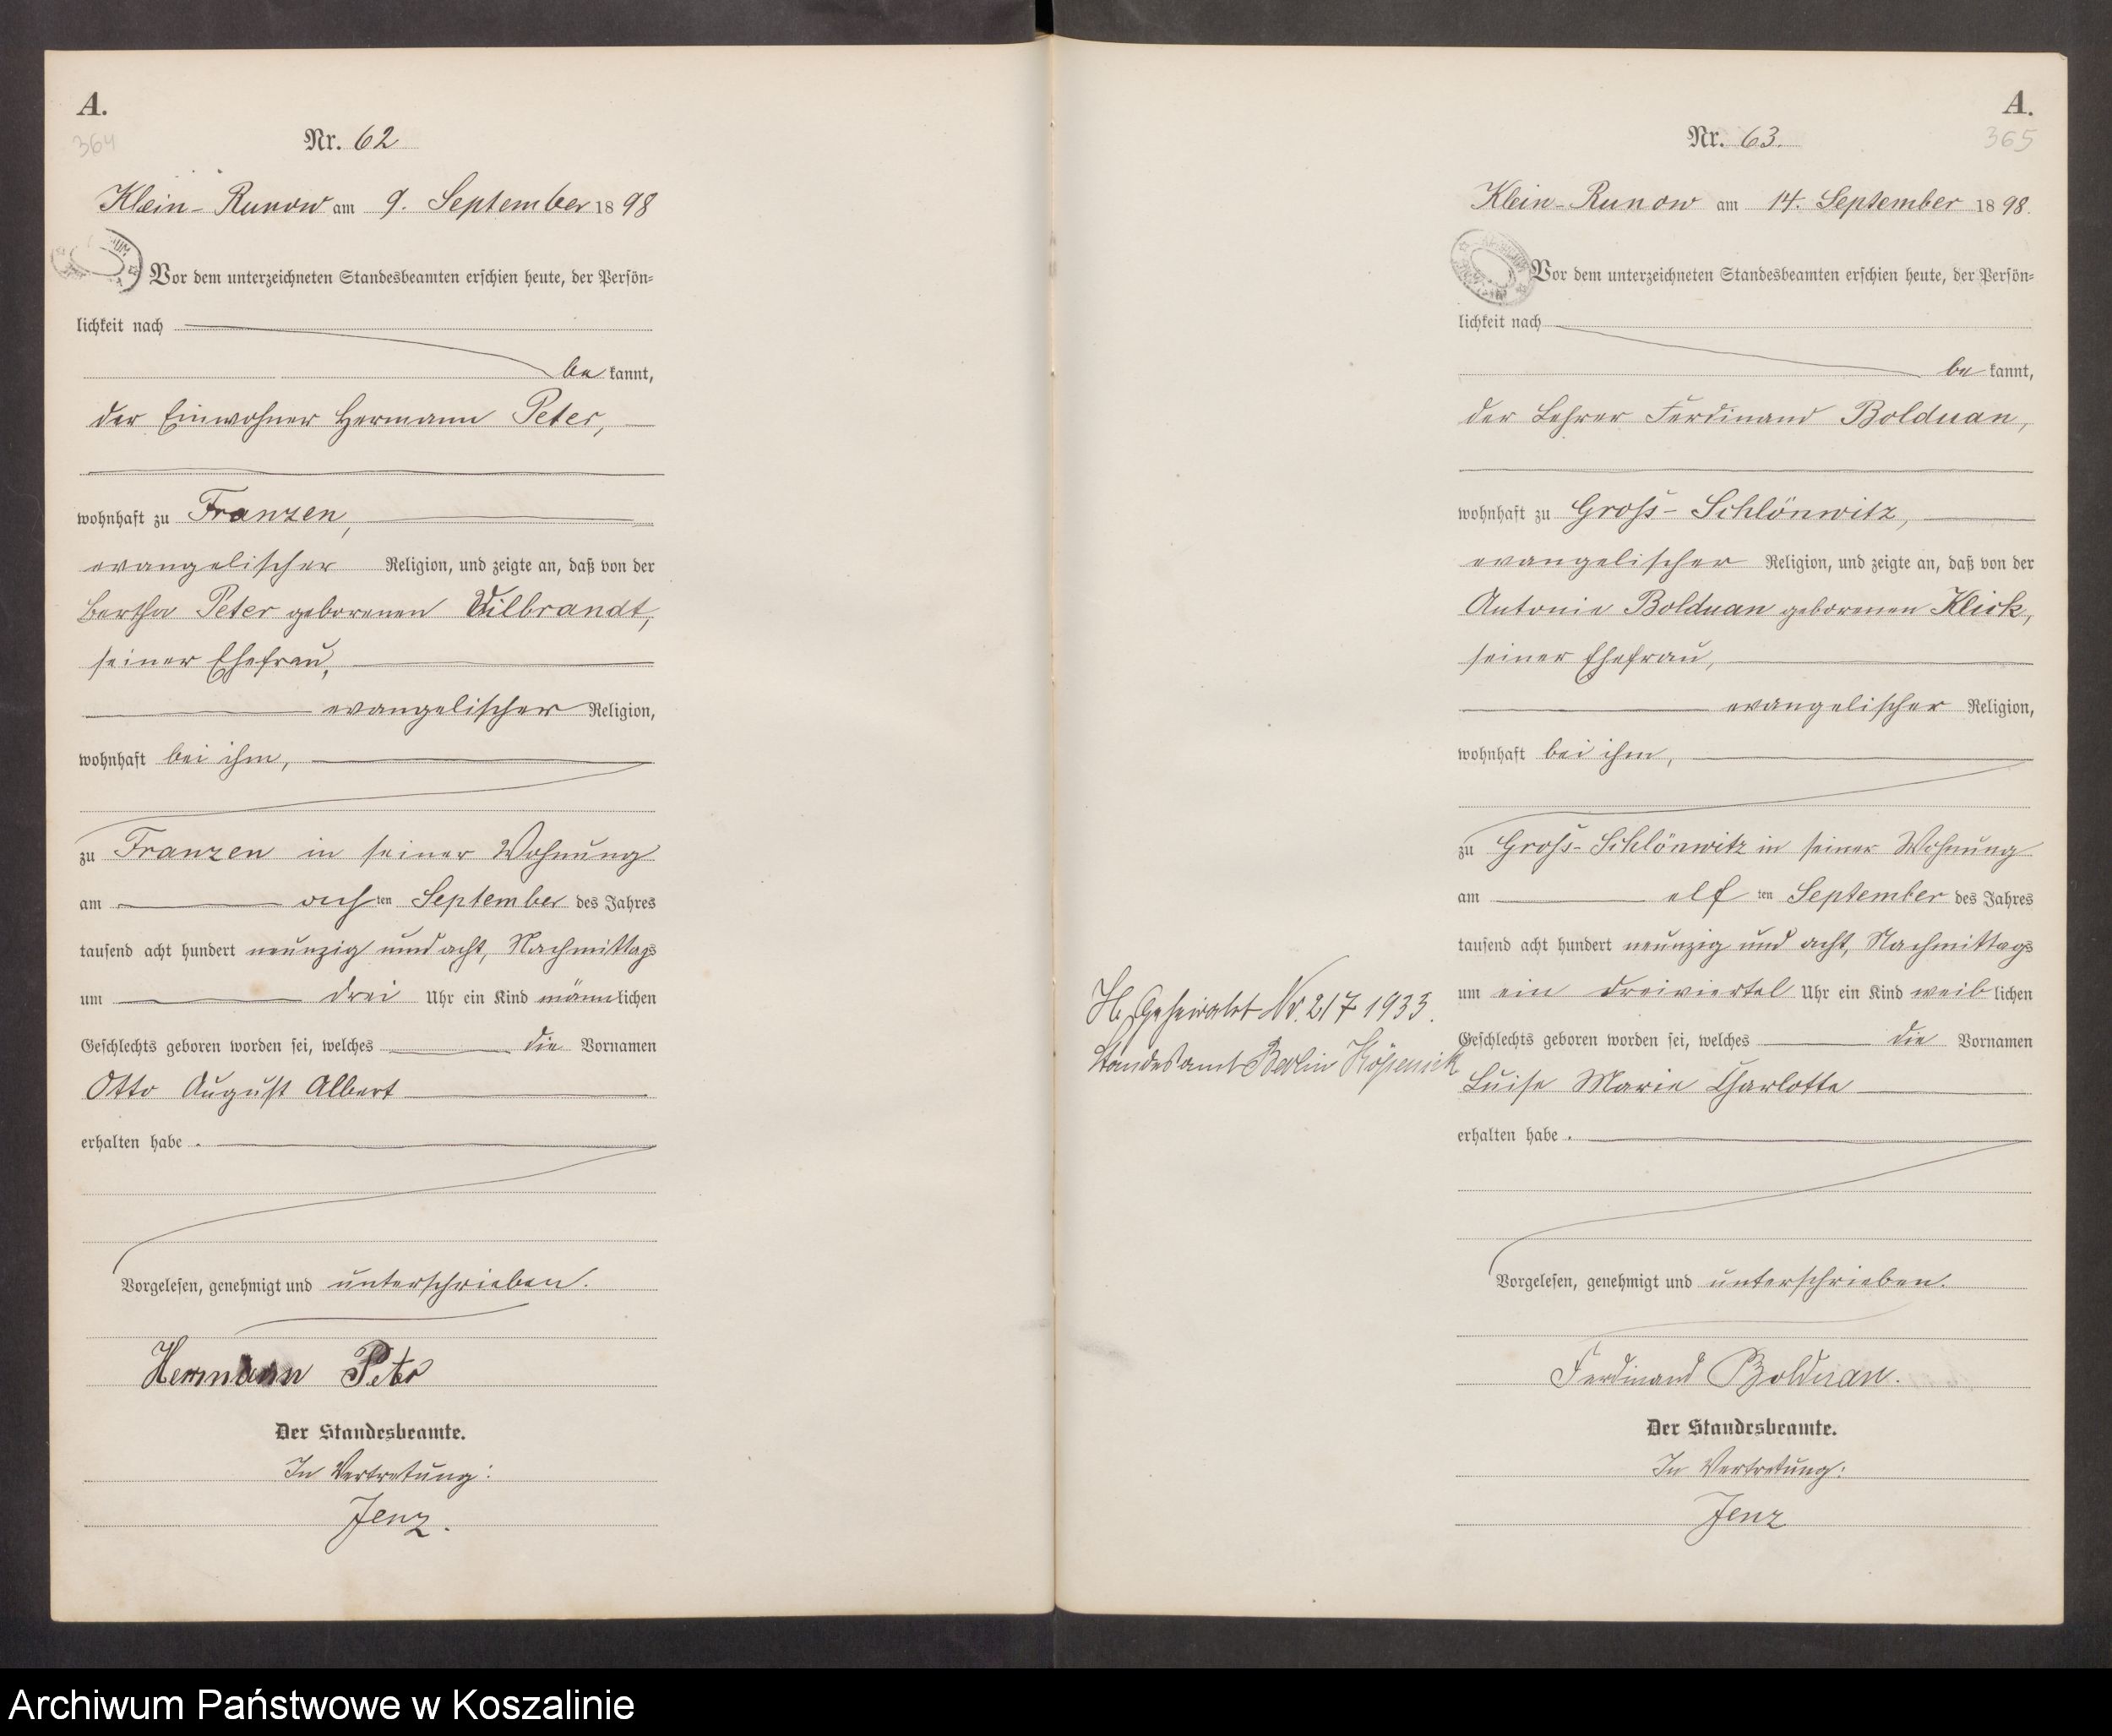 A.
364
Nr. 62
Klein-Runow am 9. September 1898
Vor dem unterzeichneten Standesbeamten erschien heute, der Persön-
lichkeit nach
be kannt,
der Einwohner Hermann Peter,
wohnhaft zu Franzen,
evangelischer Religion, und zeigte an, daß von der
Bertha Peter geborenen Wilbrandt,
seiner Ehefrau,
evangelischer Religion,
wohnhaft bei ihm,
zu Franzen in seiner Wohnung
am achten September des Jahres
tausend acht hundert neunzig und acht, Nachmittags
um drei Uhr ein Kind männlichen
Geschlechts geboren worden sei, welches die Vornamen
Otto August Albert
erhalten habe.
Vorgelesen, genehmigt und unterschrieben.
Hermann Peter
Der Standesbeamte.
In Vertretung:
Jenz.
A.
365
Nr. 63.
Klein-Runow am 14. September 1898.
Vor dem unterzeichneten Standesbeamten erschien heute, der Persön-
lichkeit nach
be kannt,
der Lehrer Ferdinand Bolduan,
wohnhaft zu Groß-Schlönwitz,
evangelischer Religion, und zeigte an, daß von der
Antonie Bolduan geborenen Klick,
seiner Ehefrau,
evangelischer Religion,
wohnhaft bei ihm,
zu Groß-Schlönwitz in seiner Wohnung
am elf ten September des Jahres
tausend acht hundert neunzig und acht, Nachmittags
um ein dreiviertel Uhr ein Kind weiblichen
Geschlechts geboren worden sei, welches die Vornamen
Luise Marie Charlotte
erhalten habe.
Vorgelesen, genehmigt und unterschrieben.
Ferdinand Bolduan.
Der Standesbeamte.
In Vertretung:
Jenz
Geheiratet Nr. 217 1933.
Standesamt Berlin Köpenick
Archiwum Państwowe w Koszalinie